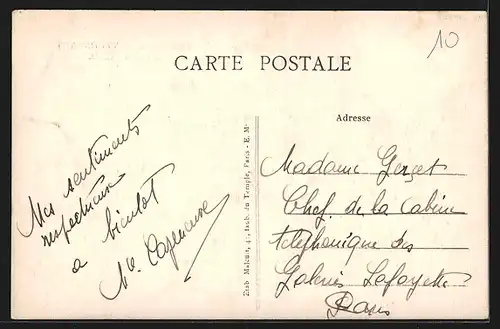 10
CARTE POSTALE
Adresse
Mes sentiments
respectueux
a bientot
Madame
Chef de la cabine
telephonique des
Galeries Lafayette
Paris
Etab Malcuit, 41, Faub. du Temple, Paris - E. M.